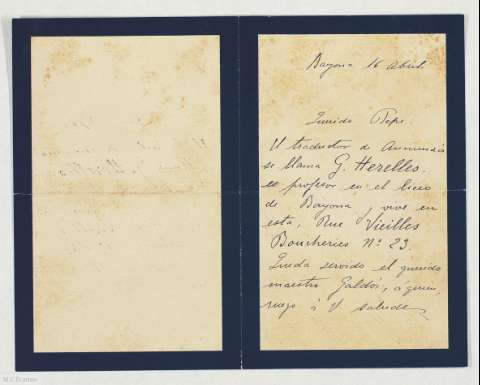 Bayona 16 Abril
Querido Pepe.
El traductor de Anunnzio
se llama G. Herelles.
es profesor en el liceo
de Bayona, y vive en
esta, Rue Vieilles
Boucheries Nº 23.
Queda servido el querido
maestro Galdós, á quien,
ruego á V salude